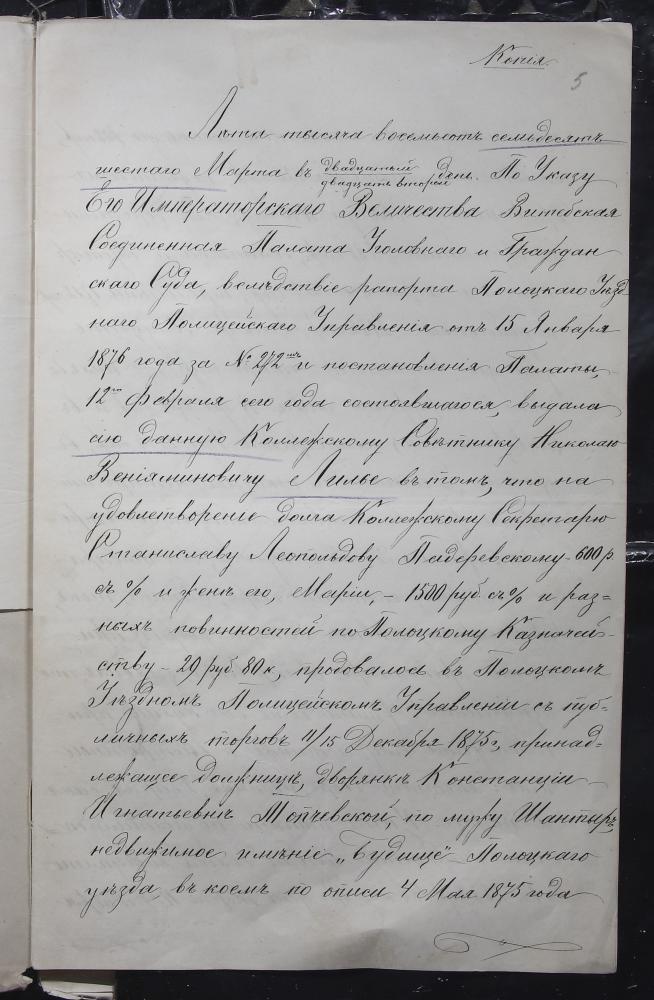 Копія.
5
Лѣта тысяча восемьсотъ семьдесятъ
шестаго Марта въ двадцатый день. По Указу
двадцать второй
Его Императорскаго Величества Витебская
Соединенная Палата Уголовнаго и Граждан
скаго Суда, вслѣдствіе рапорта Полоцкаго Уѣзд
наго Полицейскаго Управленія отъ 15 Января
1876 года за № 272мъ и постановленія Палаты,
12го Февраля сего года состоявшагося, выдала
сію данную Коллежскому Совѣтнику Николаю
Веніяминовичу Лилье въ томъ, что на
удовлетвореніе долга Коллежскому Секретарю
Станиславу Леопольдову Падеревскому - 600 р.
съ % и женѣ его, Маріи, - 1500 руб. съ % и раз=
ныхъ повинностей по Полоцкому Казначей-
ству - 29 руб. 80 к., продовалось въ Полоцкомъ
Уѣздномъ Полицейскомъ Управленіи съ пуб-
личныхъ торговъ 11/15 Декабря 1875 г., принад=
лежащее должницѣ, дворянкѣ Констанціи
Игнатьевнѣ Топчевской, по мужу Шантырь,
недвижимое имѣніе „Будище" Полоцкаго
уѣзда, въ коемъ по описи 4 Мая 1875 года